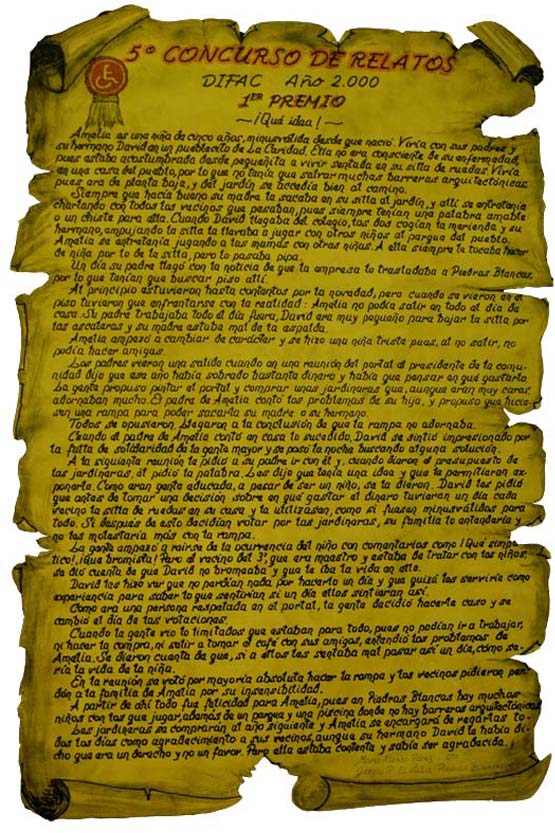 5º CONCURSO DE RELATOS
DIFAC Año 2.000
1ER PREMIO
~ ¡Qué idea! ~
Amelia es una niña de cinco años, minusválida desde que nació. Vivía con sus padres y
su hermano David en un pueblecito de La Caridad. Ella no era consciente de su enfermedad,
pues estaba acostumbrada desde pequeñita a vivir sentada en su silla de ruedas. Vivía
en una casa del pueblo, por lo que no tenía que salvar muchas barreras arquitectónicas,
pues era de planta baja, y del jardín se accedía bien al camino.
Siempre que hacía bueno su madre la sacaba en su silla al jardín, y allí se entretenía
charlando con todos los vecinos que pasaban, pues siempre tenían una palabra amable
o un chiste para ella. Cuando David llegaba del colegio, los dos cogían la merienda y su
hermano, empujando la silla la llevaba a jugar con otros niños al parque del pueblo.
Amelia se entretenía jugando a las mamás con otras niñas. A ella siempre le tocaba hacer
de niña por lo de la silla, pero lo pasaba pipa.
Un día su padre llegó con la noticia de que la empresa lo trasladaba a Piedras Blancas,
por lo que tenían que buscar piso allí.
Al principio estuvieron hasta contentos por la novedad, pero cuando se vieron en el
piso tuvieron que enfrentarse con la realidad: Amelia no podía salir en todo el día de
casa. Su padre trabajaba todo el día fuera, David era muy pequeño para bajar la silla por
las escaleras y su madre estaba mal de la espalda.
Amelia empezó a cambiar de carácter y se hizo una niña triste pues, al no salir, no
podía hacer amigas.
Los padres vieron una salida cuando en una reunión del portal el presidente de la comu-
nidad dijo que ese año había sobrado bastante dinero y había que pensar en qué gastarlo.
La gente propuso pintar el portal y comprar unas jardineras que, aunque eran muy caras,
adornaban mucho. El padre de Amelia contó los problemas de su hija, y propuso que hicie-
sen una rampa para poder sacarla su madre o su hermano.
Todos se opusieron. Llegaron a la conclusión de que la rampa no adornaba.
Cuando el padre de Amelia contó en casa lo sucedido, David se sintió impresionado por
la falta de solidaridad de la gente mayor y se pasó la noche buscando alguna solución.
A la siguiente reunión le pidió a su padre ir con él y, cuando dieron el presupuesto de
las jardineras, él pidió la palabra. Les dijo que tenía una idea y que le permitieran ex-
ponerla. Como eran gente educada, a pesar de ser un niño, se la dieron. David les pidió
que antes de tomar una decisión sobre en qué gastar el dinero tuvieran un día cada
vecino la silla de ruedas en su casa y la utilizasen, como si fuesen minusválidos para
todo. Si después de esto decidían votar por las jardineras, su familia lo entendería y
no les molestaría más con la rampa.
La gente empezó a reirse de la ocurrencia del niño con comentarios como ¡Qué simpá-
tico!, ¡Qué bromista! Pero al vecino del 3º, que era maestro y estaba de tratar con los niños,
se dió cuenta de que David no bromeaba y que le iba la vida en ello.
David les hizo ver que no perdían nada por hacerlo un día y que quizá les serviría como
experiencia para saber lo que sentirían si un día ellos sintieran así.
Como era una persona respetada en el portal, la gente decidió hacerle caso y se
cambió el día de las votaciones.
Cuando la gente vio lo limitados que estaban para todo, pues no podían ir a trabajar,
ni hacer la compra, ni salir a tomar el café con sus amigos, entendió los problemas de
Amelia. Se dieron cuenta de que, si a ellos les sentaba mal pasar así un día, cómo se-
ría la vida de la niña.
En la reunión se votó por mayoría absoluta hacer la rampa y los vecinos pidieron per-
dón a la familia de Amelia por su insensibilidad.
A partir de ahí todo fue felicidad para Amelia, pues en Piedras Blancas hay muchos
niños con los que jugar, además de un parque y una piscina donde no hay barreras arquitectónicas.
Las jardineras se comprarán al año siguiente y Amelia se encargará de regarlas to-
dos los días como agradecimiento a sus vecinos, aunque su hermano David le había di-
cho que era un derecho y no un favor. Pero ella estaba contenta y sabía ser agradecida.